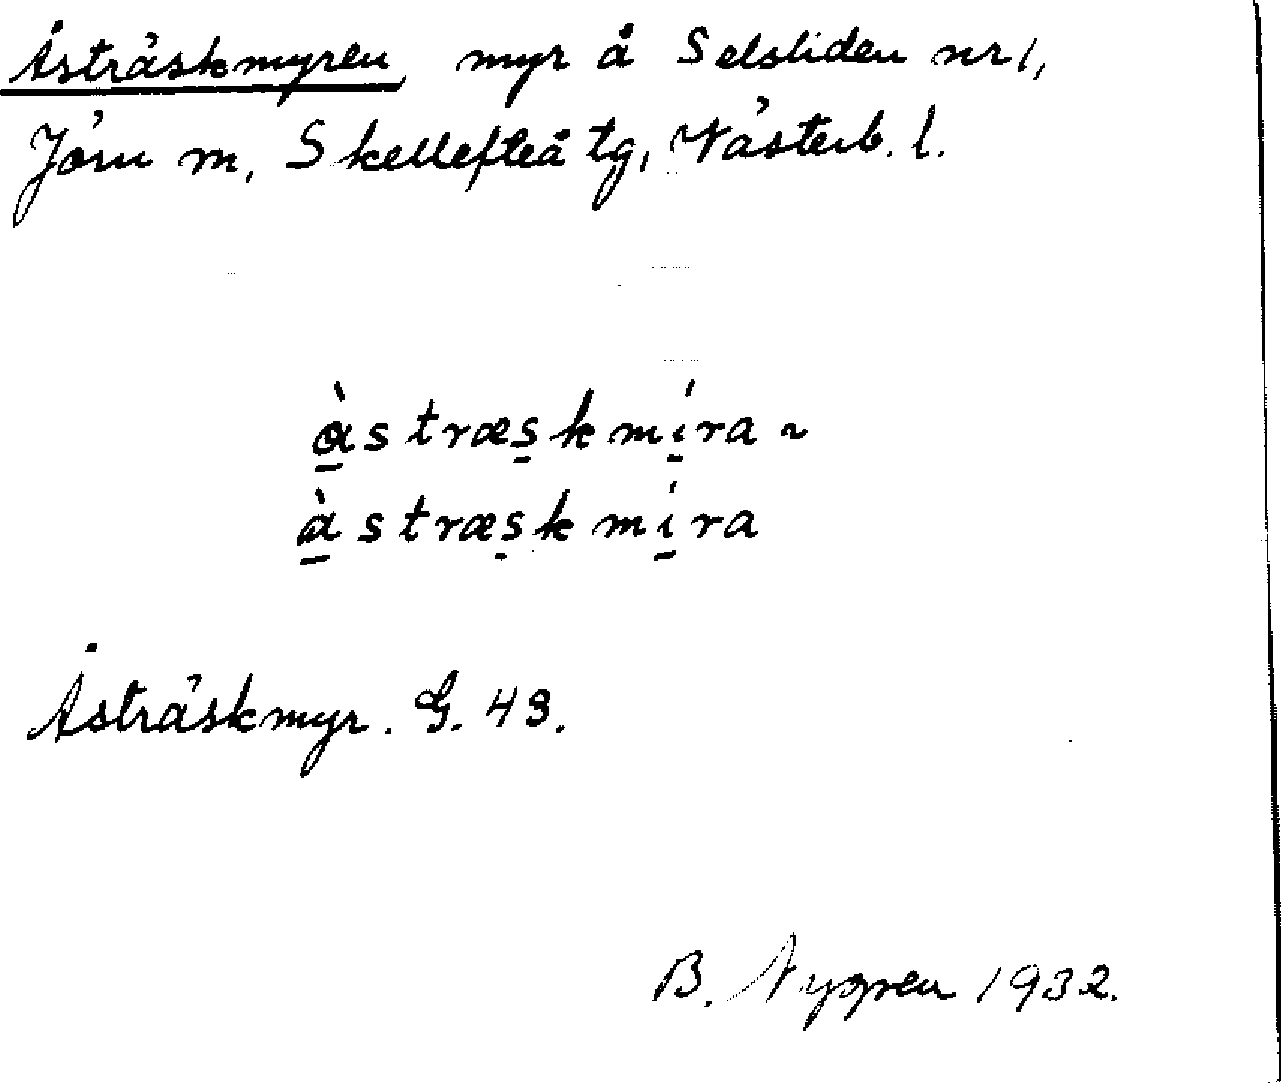 Åsträskmyren, myr å Selsliden nr 1,
Jörn sn, Skellefteå tg, Västerb. l.
ɑ̲̀stræs̱kmí̲ra ~
à̲stræs̱kmí̲ra
Åsträskmyr. G. 43.
B. Nygren 1932.